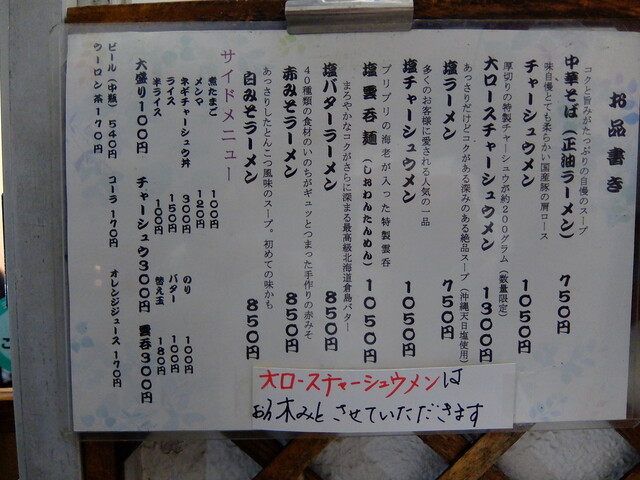 お品書き
コクと旨みがたっぷりの自慢のスープ
中華そば(正油ラーメン) 750円
味自慢とても柔らかい国産豚の肩ロース
チャーシュウメン 1050円
厚切りの特製チャーシュウが約200グラム(数量限定)
大ロースチャーシュウメン 1300円
あっさりだけどコクがある深みのある絶品スープ(沖縄天日塩使用)
塩ラーメン 750円
多くのお客様に愛される人気の一品
塩チャーシュウメン 1050円
プリプリの海老が入った特製雲呑
塩雲呑麺(しおわんたんめん) 1050円
まろやかなコクがさらに深まる最高級北海道倉島バター
塩バターラーメン 850円
40種類の食材のいのちがギュッとつまった手作りの赤みそ
赤みそラーメン 850円
あっさりしたとんこつ風味のスープ。初めての味かも
白みそラーメン 850円
サイドメニュー
煮たまご 100円
メンマ 120円
ネギチャーシュウ丼 300円
ライス 150円
半ライス 100円
のり 100円
バター 100円
替え玉 180円
大盛り100円 チャーシュウ300円 雲呑300円
ビール(中瓶) 540円 コーラ 170円 オレンジジュース 170円
ウーロン茶 170円
大ロースチャーシュウメンは
お休みとさせていただきます